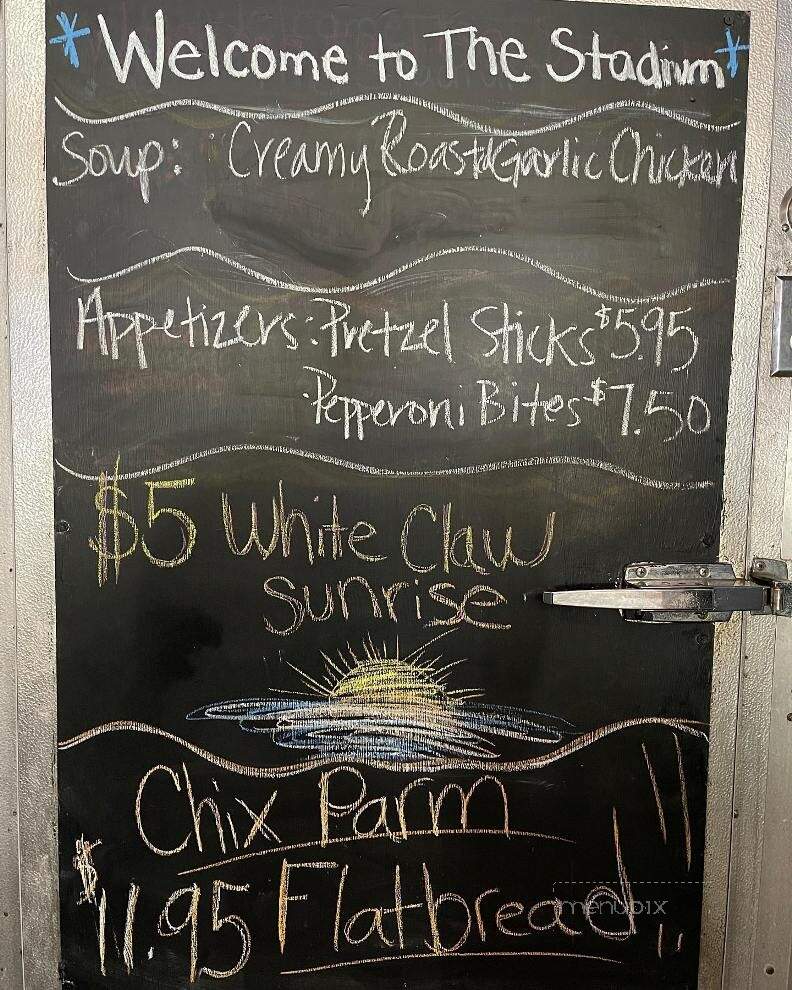 *Welcome to The Stadium*
Soup: Creamy Roastd Garlic Chicken
Appetizers: Pretzel Sticks $5.95
·Pepperoni Bites $7.50
$5 White Claw
Sunrise
Chix Parm
$11.95 Flatbread!!
menupix